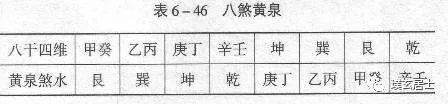 表6-46 八煞黄泉
八干四维 甲癸 乙丙 庚丁 辛壬 坤 巽 艮 乾
黄泉煞水 艮 巽 坤 乾 庚丁 乙丙 甲癸 辛壬